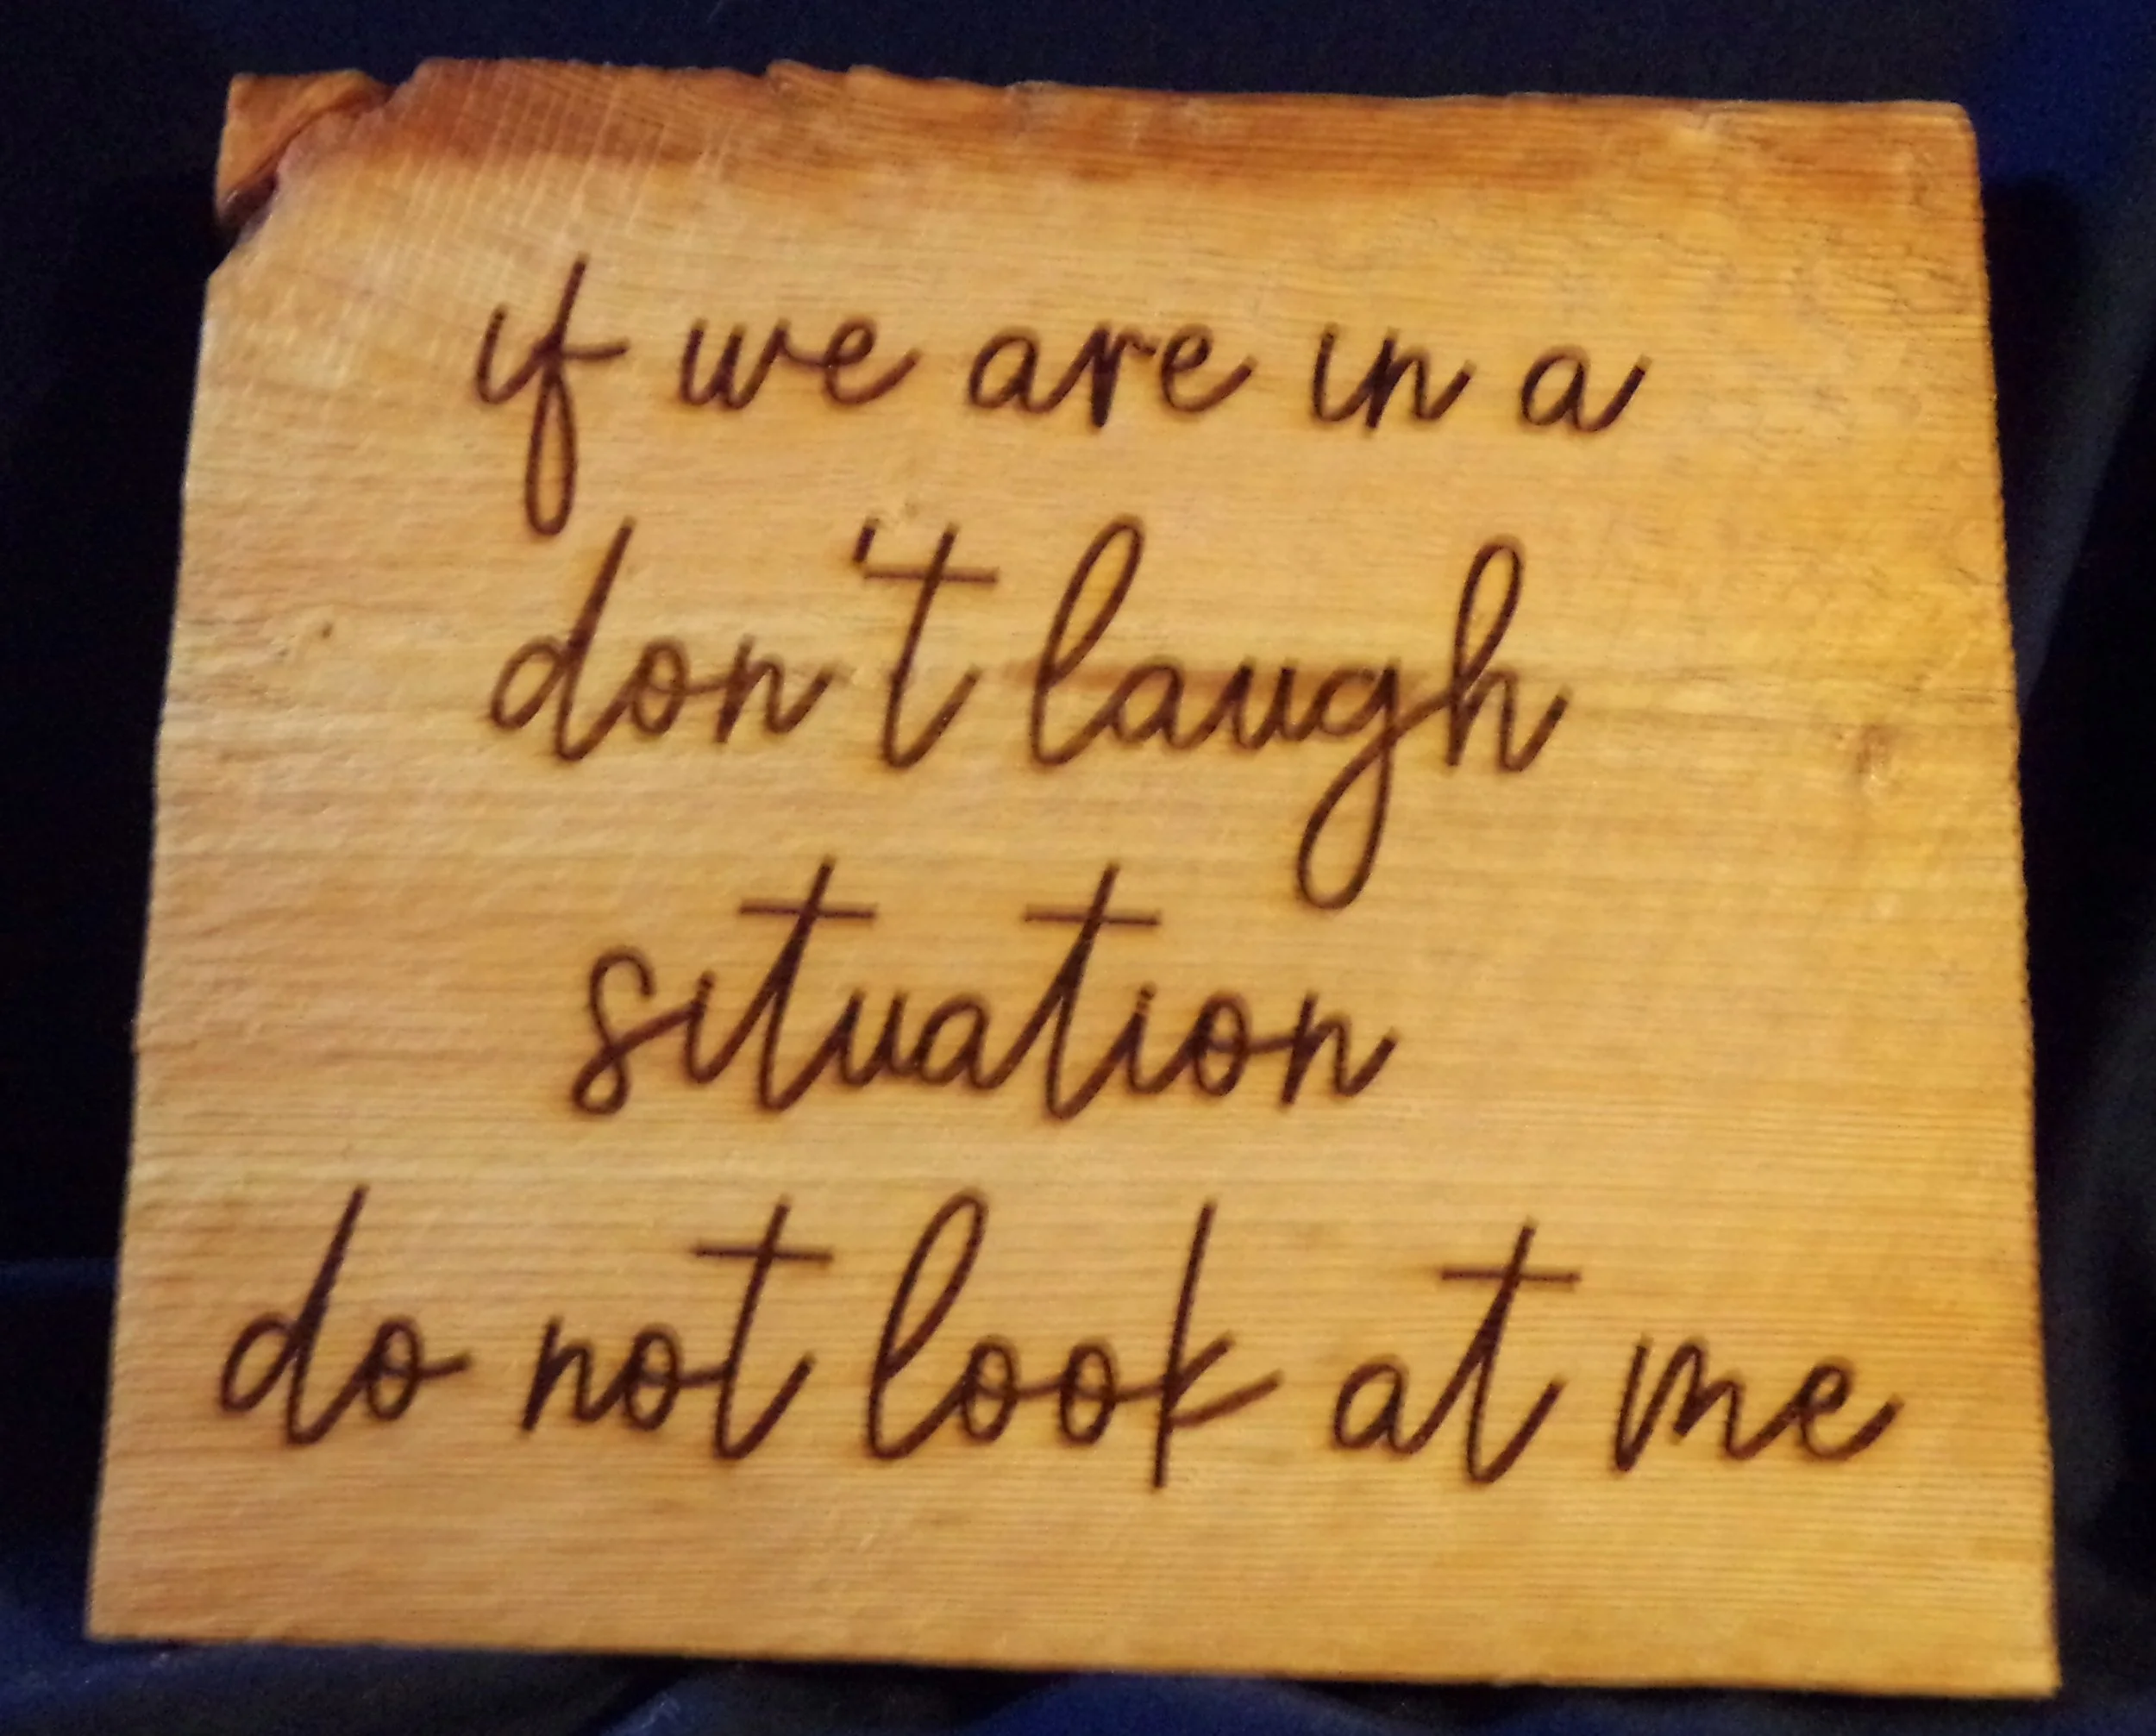 if we are in a
don't laugh
situation
do not look at me